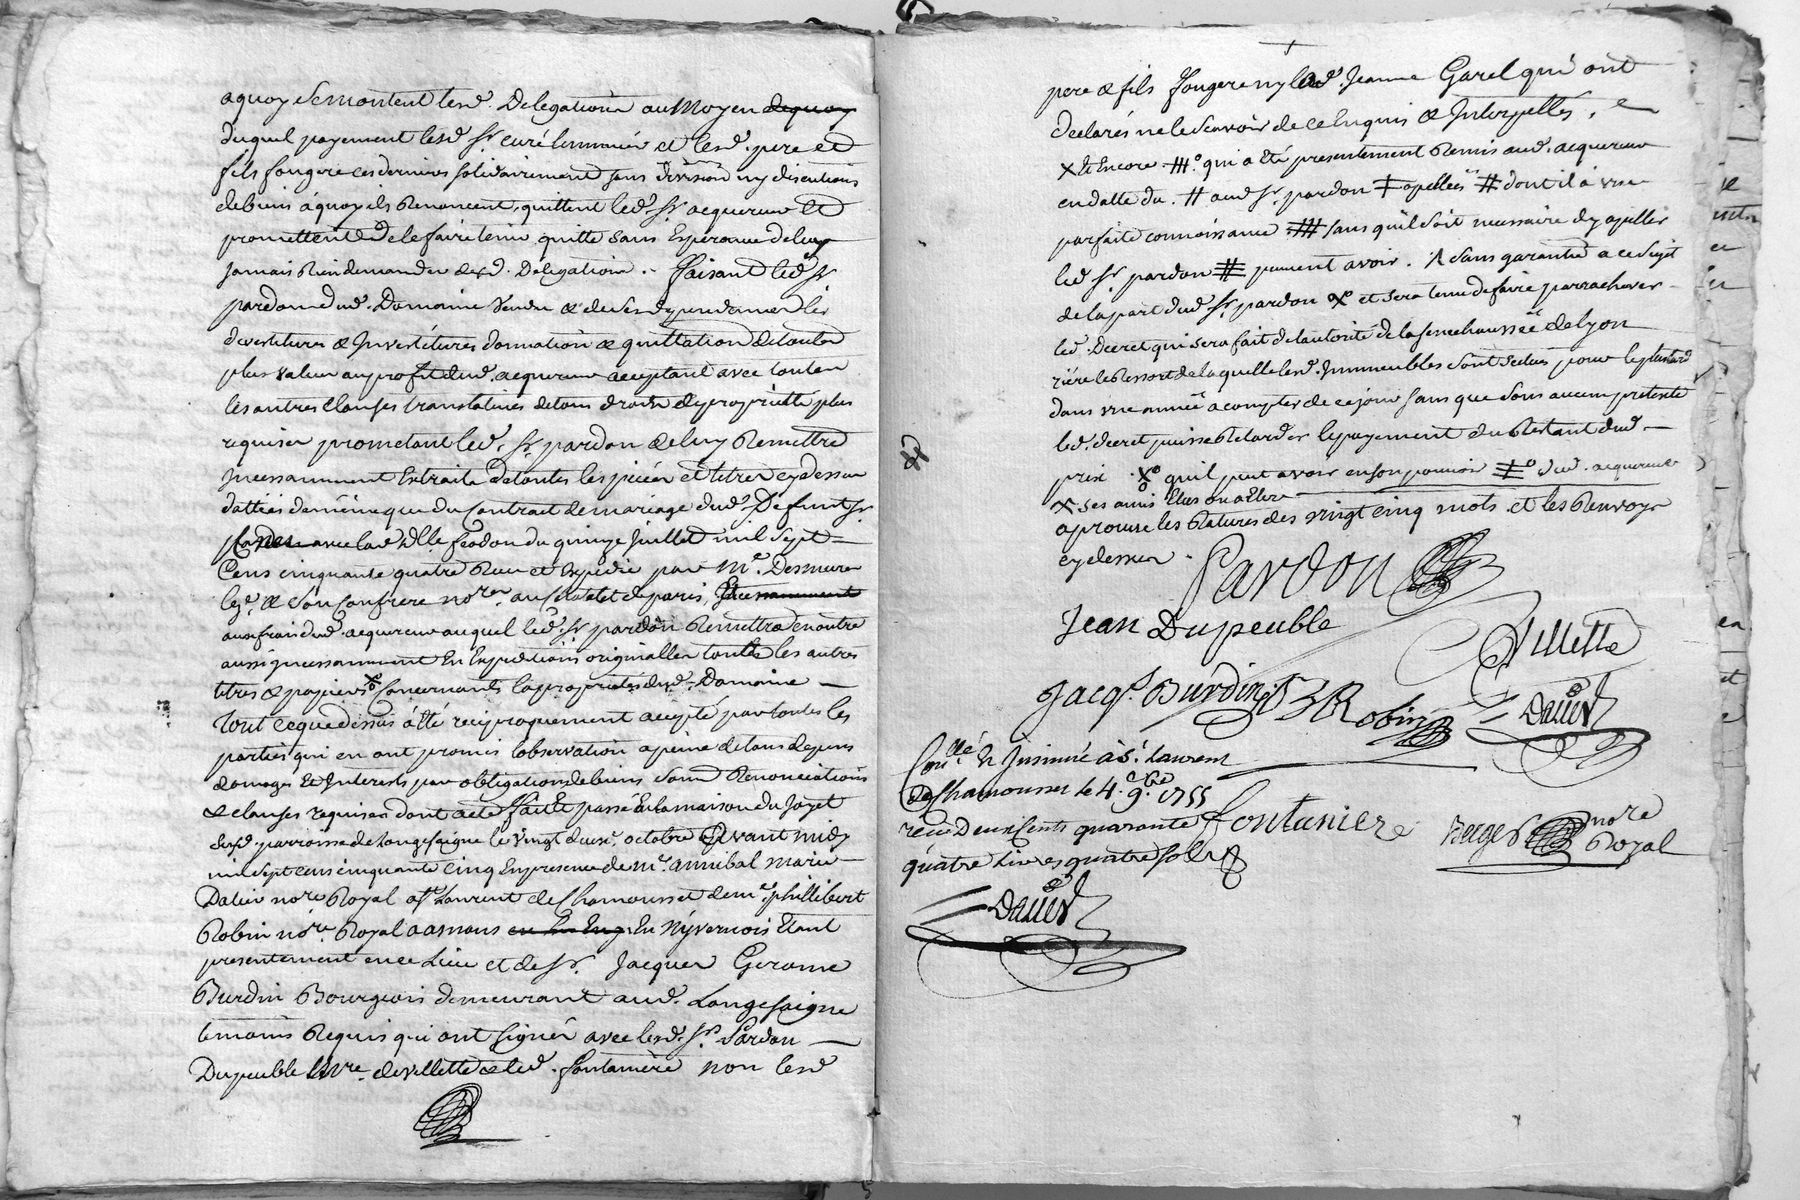 aquoy Se montent lesd. Delegations au Moyen dequoy
duquel payement lesd. Sr. curé Commun et lesd. pere et
fils fongere ces derniers solidairement sans division ny discutions
de biens à quoy ils Renoncent, quittent led. Sr. acquereur Et
promettent de le faire tenir quitte sans Esperance de luy
Jamais Rien demander desd. Delegations. faisant led. Sr.
pardon dud. Domaine Vendu & de ses dependances les
devestitures & Investitures donnation & quittation de toutes
plus value au profit dud. acquereur acceptant avec toutes
les autres Clauses translatives de tous droits de proprietté plus
requises prometant led. Sr. pardon de luy Remettre
Incessamment Extraits de toutes les pieces et titres cydessus
dattées de même que du Contract de mariage dud. Defunt Sr.
avec lad. Dlle feodon du quinze Juillet mil Sept
Cens cinquante quatre Reçu et Expedié par Mr. Desmeure
& Son Confrere nores au Chatelet de paris, Incessamment
aux frais dud. acquereur auquel led. Sr pardon Remettra en outre
aussi incessamment En Expeditions originalles toutes les autres
titres & papiers Concernants la proprieté dud. Domaine
Tout ce que dessus à été reciproquement accepté par toutes les
parties qui en ont promis l'observation a peine de tous depens
domages Et Interests par obligations de biens Sous Renonciations
& clauses requises dont acte fait Et passé En la maison du Jayet
susd. parroisse de Longesaigne le Vingt deuxe. octobre avant midy
mil sept cens cinquante cinq En presence de mr. annibal marie
Dalier nore Royal a St Laurent de Chamousset de me. phillibert
Robin nore. Royal a asnans en En Nyvernois Etant
presentement en ce Lieu et de Sr. Jacques Gerome
Burdin Bourgeois demeurant aud. Longesaigne
temoins Requis qui ont Signés avec lesd. Srs. Pardon
Dupeuble de villette & led. fontaniere non lesd
pere & fils fongere ny lad. Jeanne Garel qui ont
declarés ne le Scavoir de ce Enquis & Interpellés.
X Et Encore qui a été presentement Remis aud. acquereur
en datte du. # aud Sr. pardon appellés # dont il à une
parfaite connoissance # sans qu'il soit necessaire d'y apeller
led Sr. pardon # peuvent avoir. A Sans garantie a ce Sujet
de la part dud Sr. pardon X et sera tenu de faire parrachever
led. Decret qui sera fait de lautorité de la senechaussée de lyon
riere le Ressort de laquelle lesd. Immeubles sont scitués pour le plus tard
dans une année a compter de ce jour sans que sous aucun pretexte
led. decret puisse Retarder le payement du Restant dud.
prix X qu'il peut avoir en son pouvoir # dud. acquereur
X ses amis Elus ou a Elire
aprouve les Ratures des vingt cinq mots et les Renvoys
cydessus.
Pardon
Jean Dupeuble
Villette
Jacqs. Burdin
Robin
Dalier
Conllé & Insinué à St. Laurent
de Chamousset le 4. 9bre 1755
reçu Deux Cents quarante
quatre Livres quatre sols
Dalier
fontaniere
nore
Royal